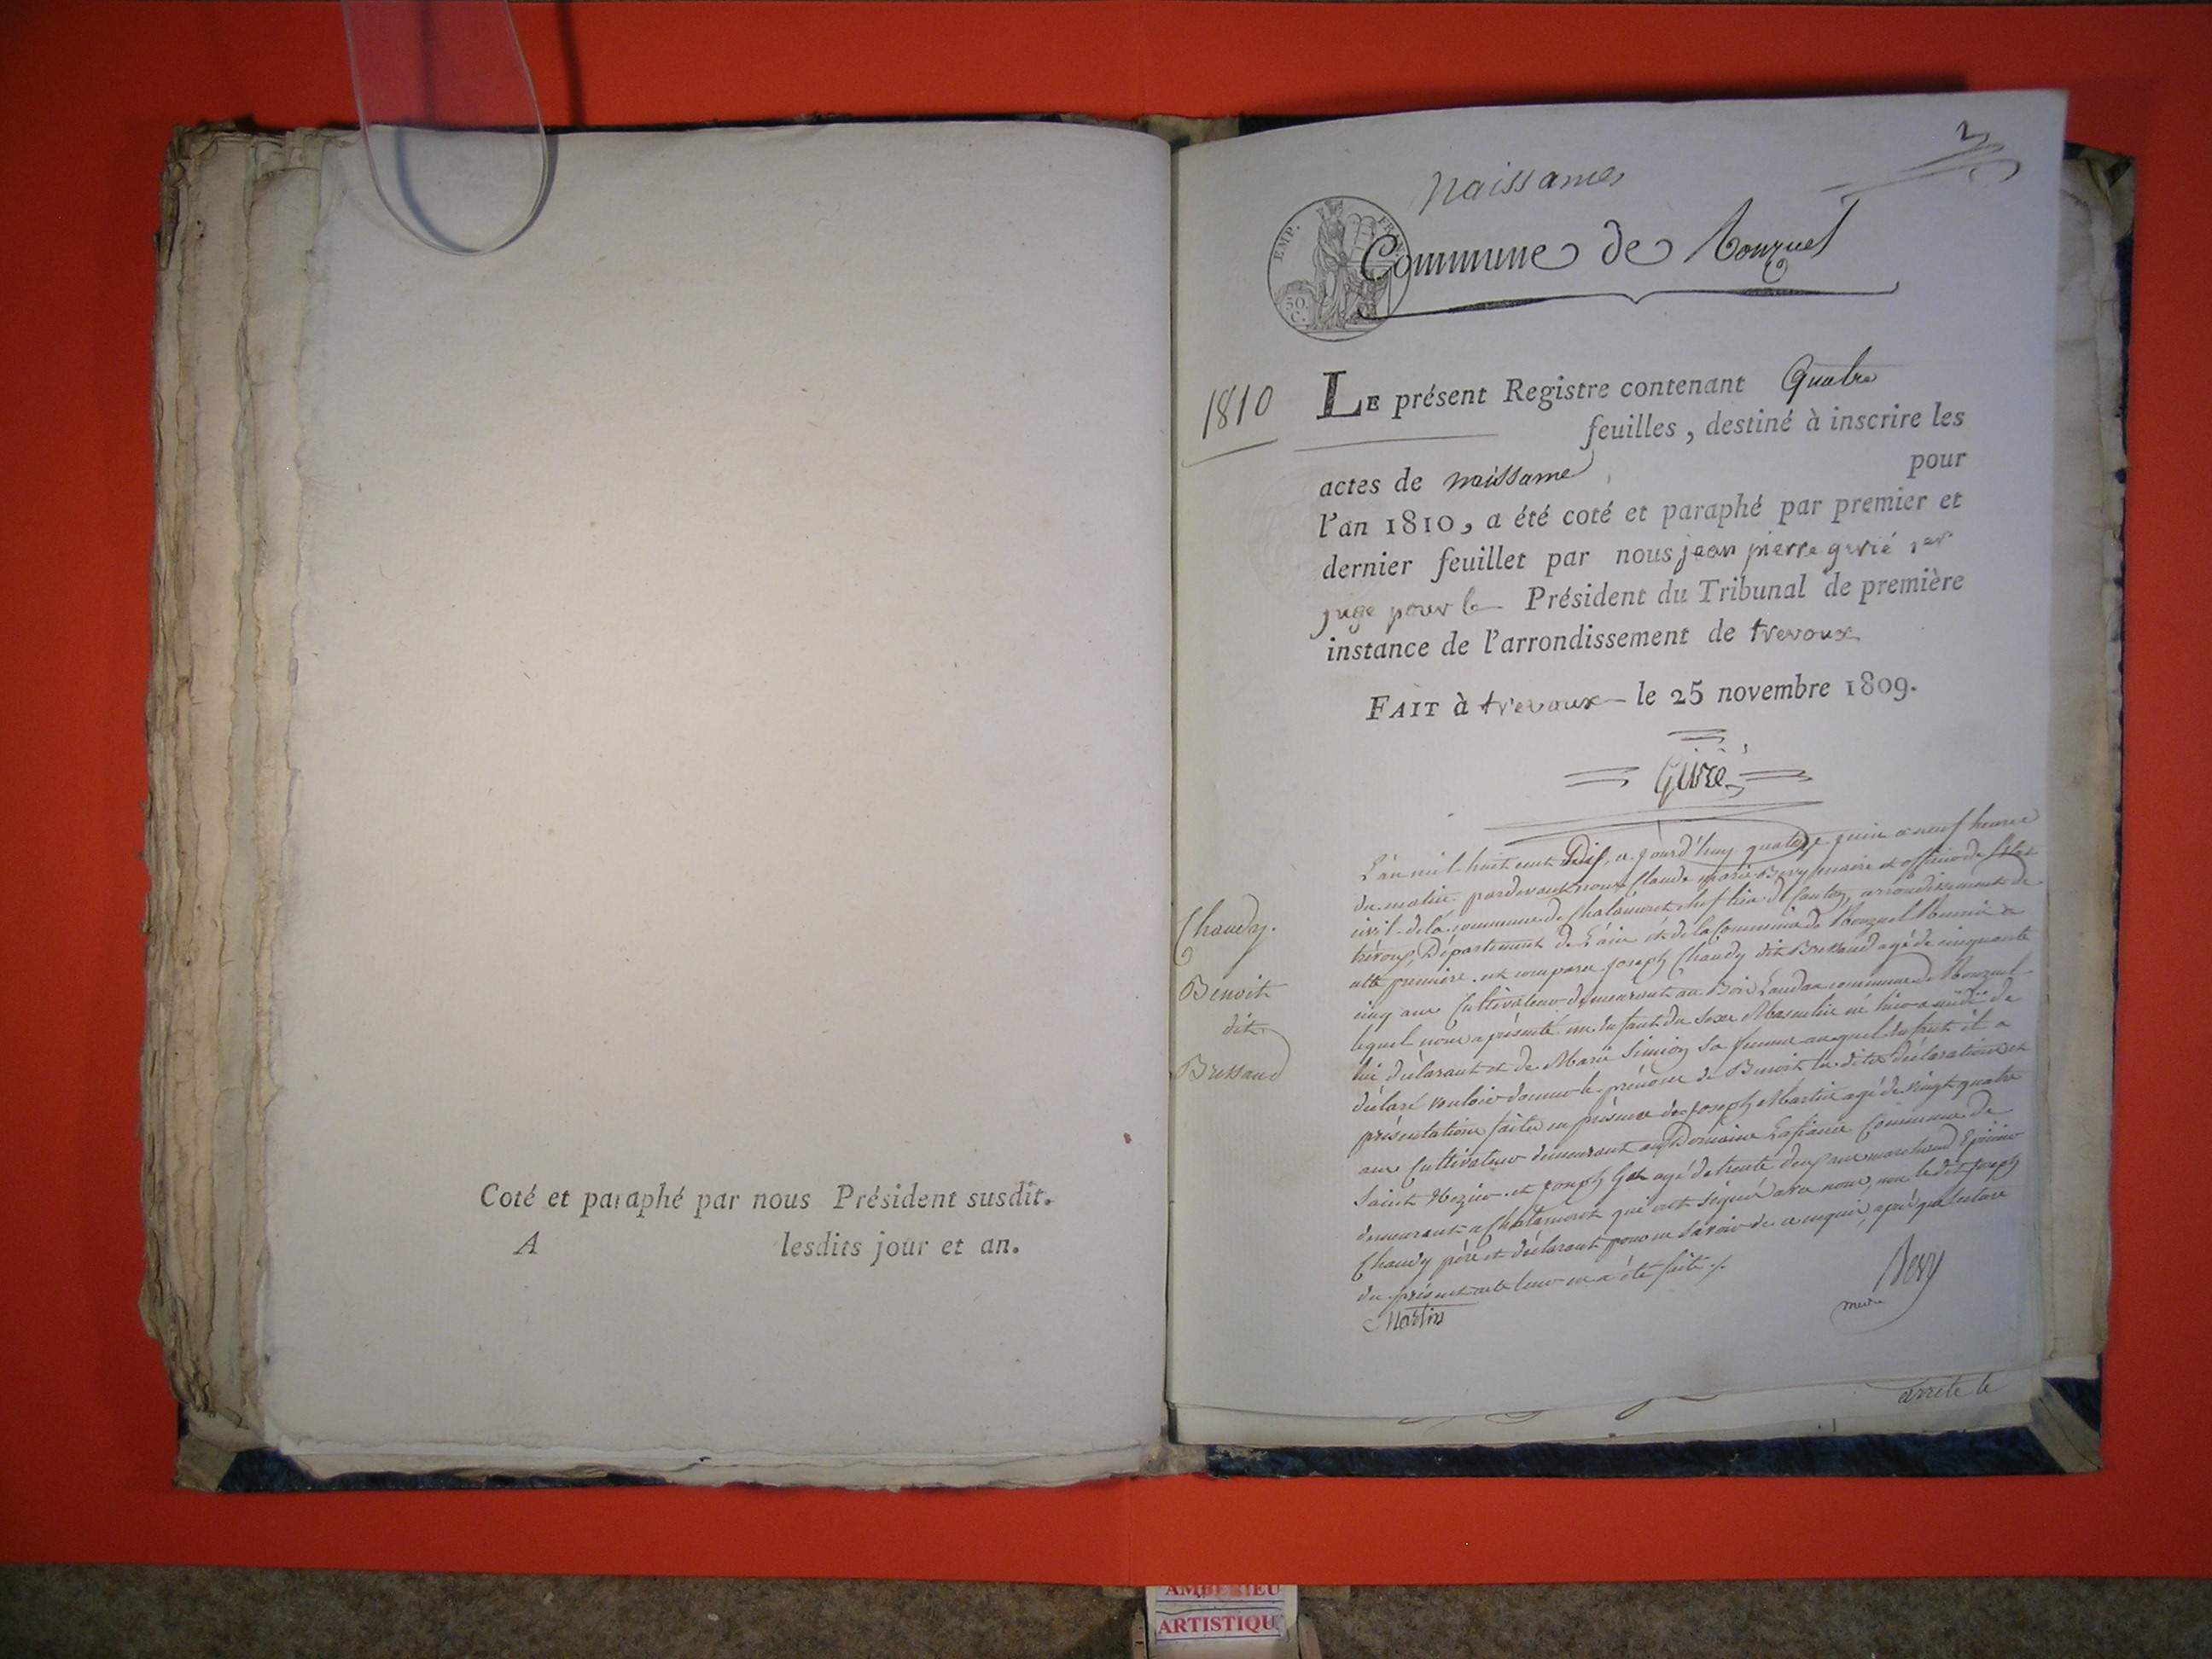 Coté et paraphé par nous Président susdit.
A lesdits jour et an.
Naissances
EMP. FRAN
50.
C.
Commune de Ronzuel
1810
LE présent Registre contenant Quatre
feuilles, destiné à inscrire les
actes de naissance pour
l'an 1810, a été coté et paraphé par premier et
dernier feuillet par nous jean pierre givré 1er
juge pour le Président du Tribunal de première
instance de l'arrondissement de trevoux
FAIT à trevoux le 25 novembre 1809.
Givré
Chaudy.
Benoit
dit
Bressand
L'an mil huit cent Dix, a jourd'huy quatorze juin a neuf heures
du matin pardevant nous Claude marie Bevy maire et officier de l'état
civil de la commune de Chalamont chef lieu de Canton, arrondissement de
trévoux, Département de l'ain et de la Commune de Ronzuel Reunie a
cette première est comparu joseph Chaudy dit Bressand agé de cinquante
cinq ans Cultivateur demeurant au Bois Landan commune de Ronzuel
lequel nous a présenté un Enfant du Sexe Masculin né hier a midi de
lui déclarant et de Marie Simion sa femme auquel Enfant il a
déclaré vouloir donner le prénom de Benoit les dites déclaration et
présentation faites en présence de joseph Martin agé de vingt quatre
ans Cultivateur demeurant au Domaine Commune de
Saint Nizier et joseph agé de trente deux ans marchand Epicier
demeurant a Chalamont qui ont signé avec nous, non le dit joseph
Chaudy père et déclarant pour ne savoir de ce enquis, après que lecture
du présent acte leur en a été faite.
Martin
Bevy
maire
arrete le
AMBERIEU
ARTISTIQU